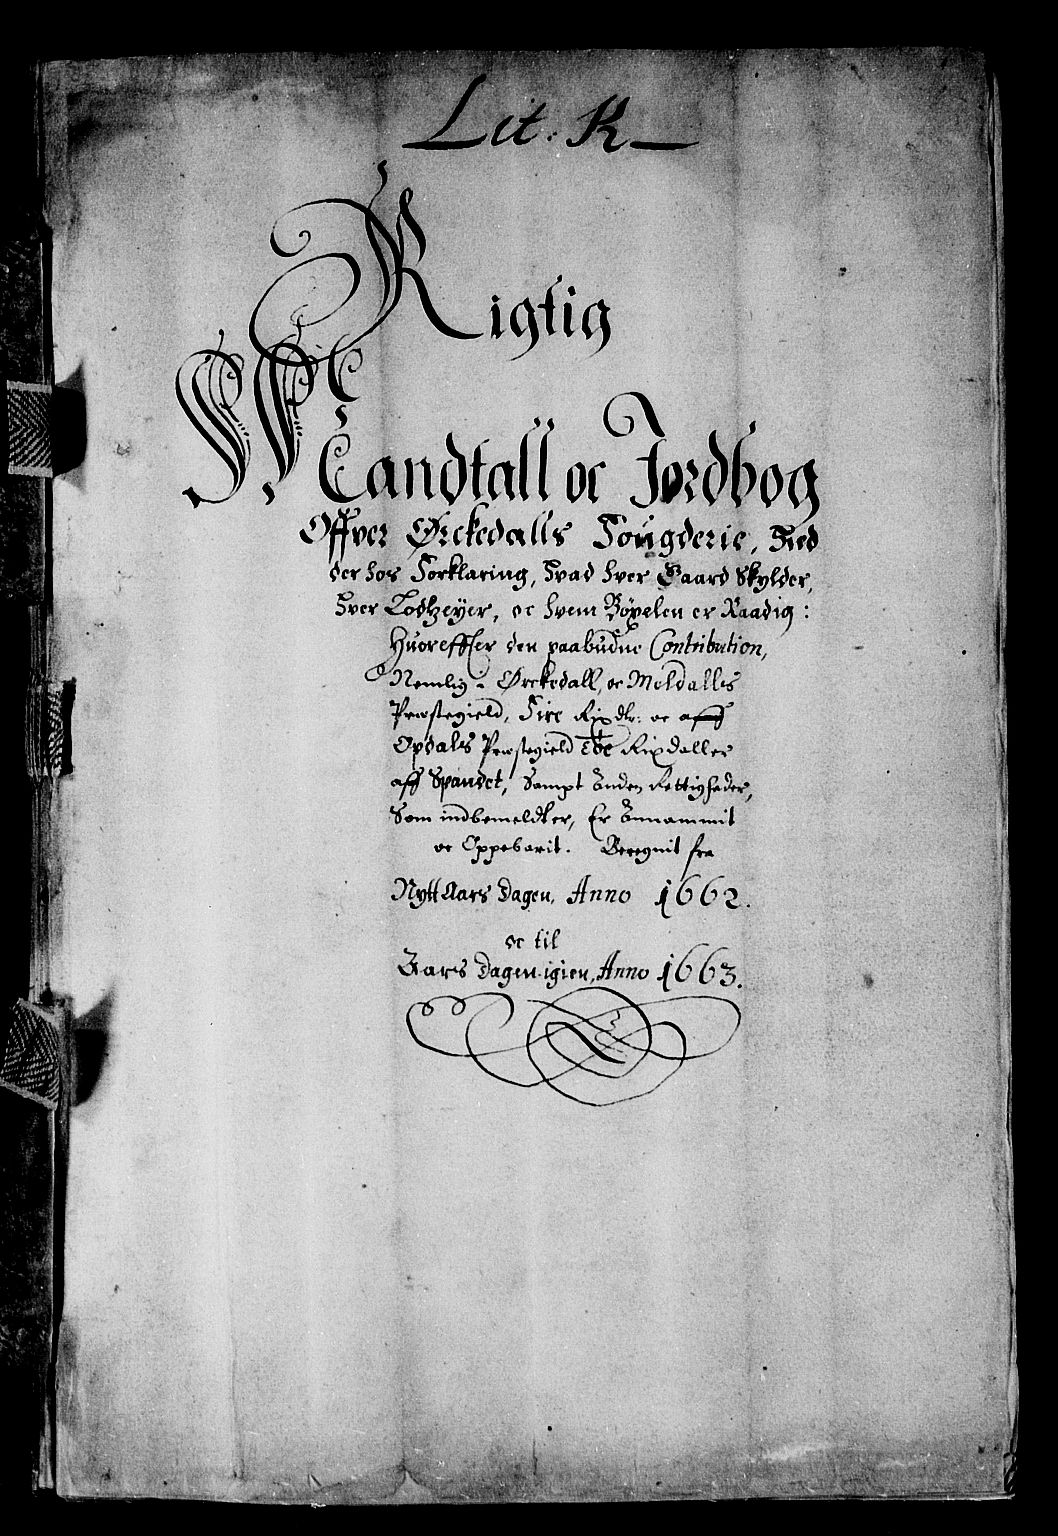 Lit: K
Rigtig
Mandtall oc Jordbog
Offver Ørckedalls Fougderie, Hed
der hos Forklaring, Hvad hver Gaard Skylder,
Hver Lodzeyer, oc hvem Böxelen er Raadig:
Huoreffter den paabudne Contribution,
Nemlig i Ørckedall, oc Meldalls
Præstegield, Fire Rixdlr: oc aff
Opdals Præstegield toe Rixdaller
aff Spandet, Sampt Anden Rettigheder,
Som indbemeldter, Er Annammit
oc Oppebarit. Beregnit fra
Nytt Aars Dagen, Anno 1662.
oc til
Aars Dagen igien, Anno 1663.